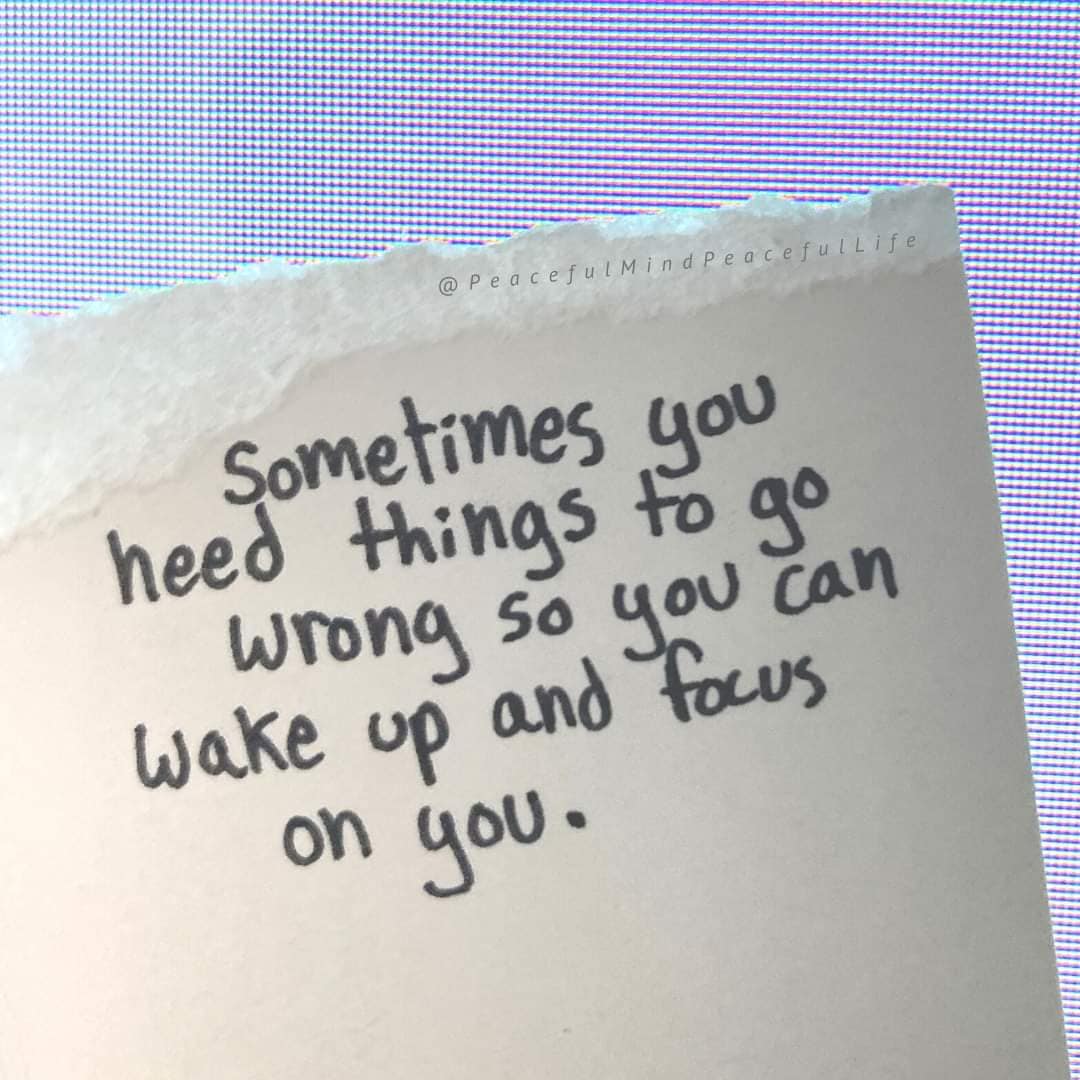 @PeacefulMindPeacefulLife
Sometimes you
need things to go
wrong so you can
wake up and focus
on you.